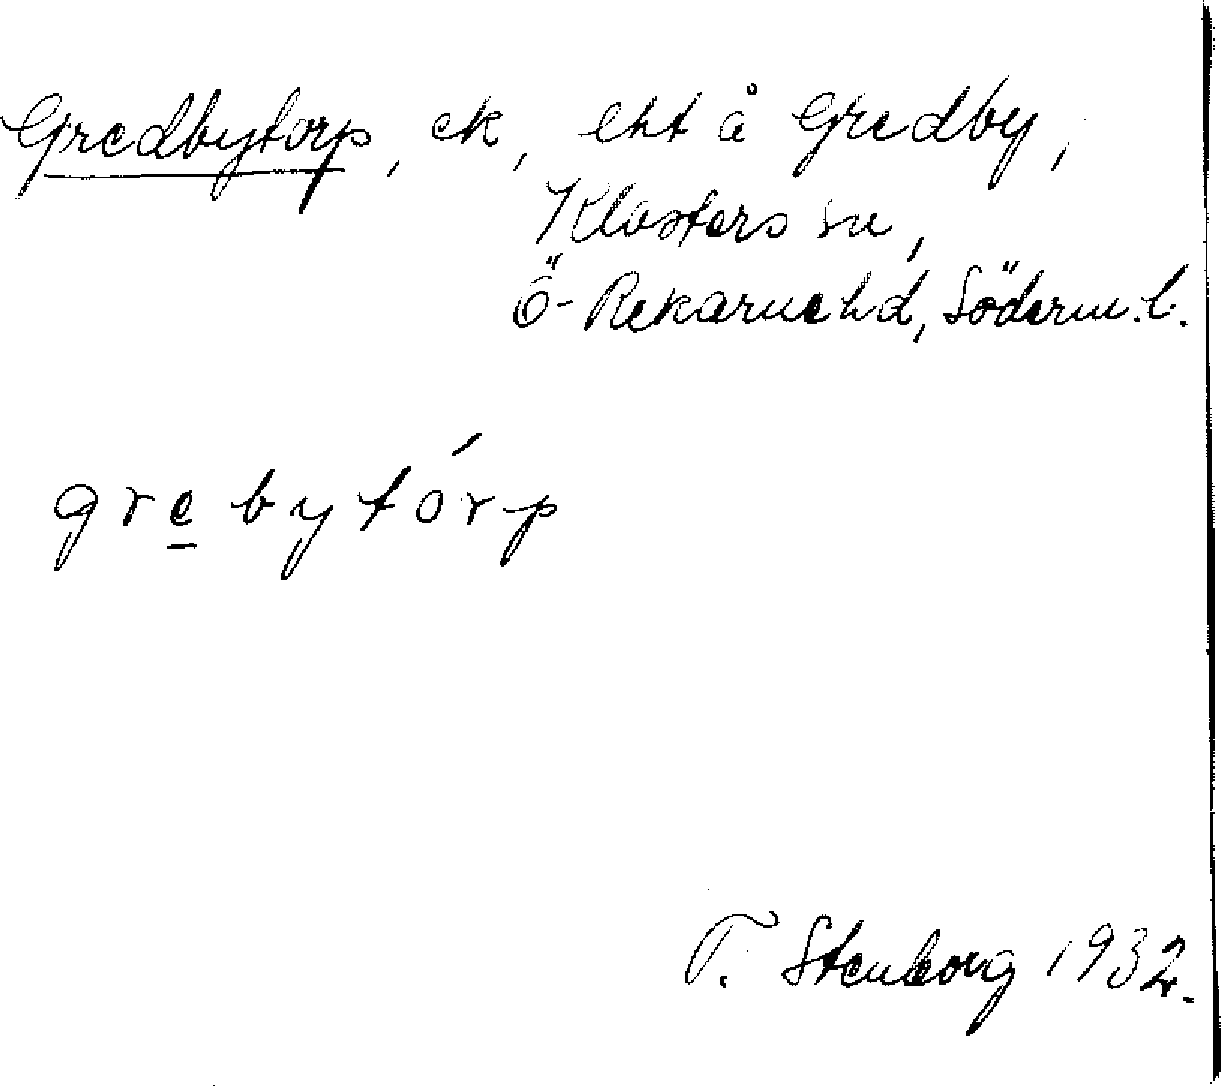 Gredbytorp, ek, eht å Gredby,
Klosters sn,
Ö-Rekarnehd, Söderm.l.
grebytórp
T. Stenborg 1932.